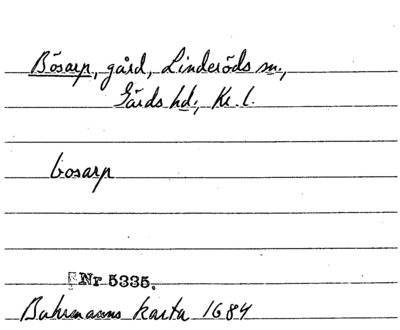 Bösarp, gård, Linderöds sn.,
Gärds hd., Kr. l.
bosarp
Nr 5335.
Buhrmanns karta 1684